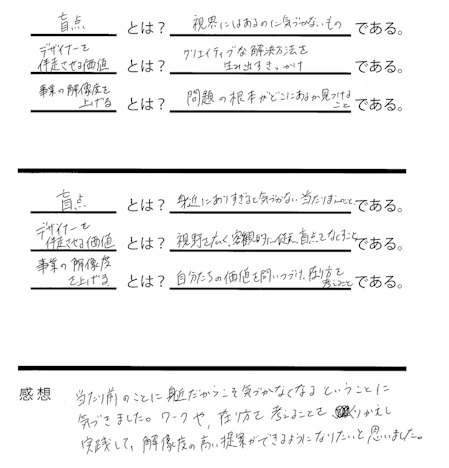 盲点 とは? 視界にはあるのに気づかないもの である。
デザイナーを
伴走させる価値 とは? クリエイティブな解決方法を
生み出すきっかけ である。
事業の解像度を
上げる とは? 問題の根本がどこにあるか見つける
こと である。
盲点 とは? 身近にありすぎると気づかない当たりまえのこと である。
デザイナーを
伴走させる価値 とは? 視野を広く、客観的に捉え、盲点をなくすこと である。
事業の解像度
を上げる とは? 自分たちの価値を問いつづけ、在り方を
考えること である。
感想 当たり前のことに身近だからこそ気づかなくなるということに
気づきました。ワークや、在り方を考えることをくりかえし
実践して、解像度の高い提案ができるようになりたいと思いました。